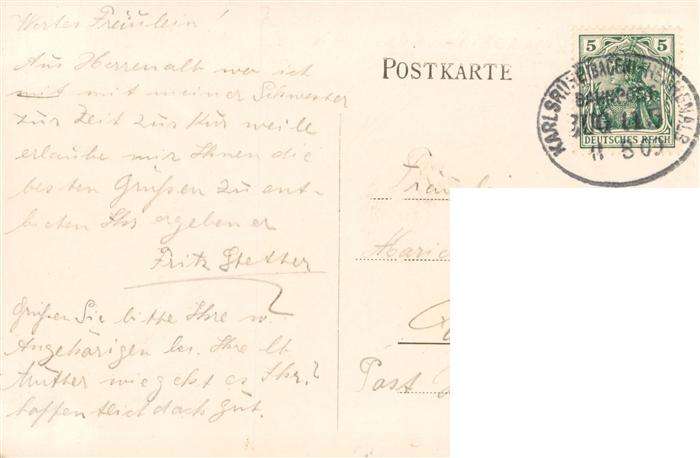 Wertes Fräulein!
Aus Herrenalb wo ich
mit mit meiner Schwester
zur Zeit zur Kur weile
erlaube mir Ihnen die
besten Grüßen zu ent-
bieten Ihr ergebener
Fritz Stetter
Grüßen Sie bitte Ihre w.
Angehörigen bes. Ihre lb
Mutter wie geht es Ihr?
hoffentlich doch gut.
POSTKARTE
5 5
DEUTSCHES REICH
BAHNPOST
Fräulein
Marie
Post